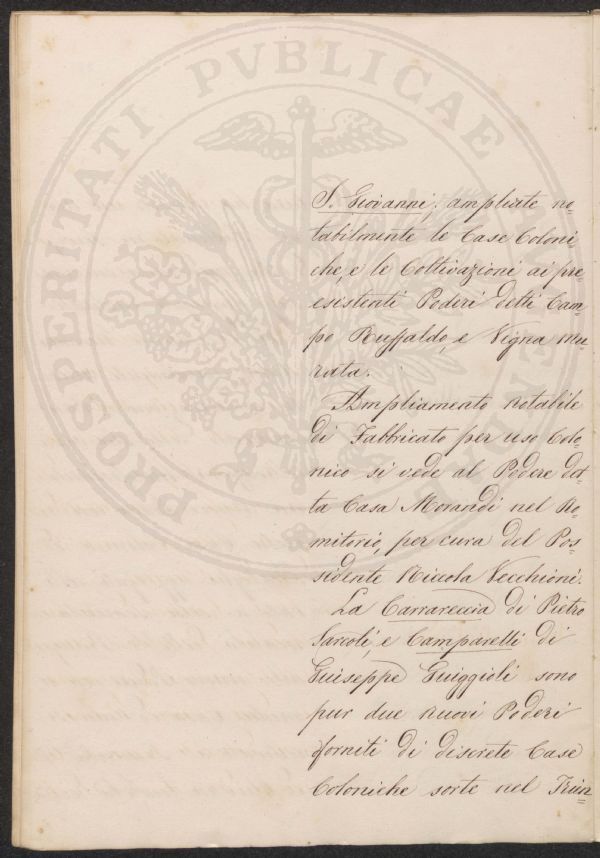 S. Giovanni; ampliate no=
tabilmente le Case Coloni
che, e le Coltivazioni ai pre=
esistenti Poderi detti Cam=
po Ruffaldo, e Vigna Mu=
rata.
Ampliamento notabile
di Fabbricato per uso Colo=
nico si vede al Podere det=
ta Casa Morandi nel Ro=
mitorio, per cura del Pos=
sidente Niccola Vecchioni.
La Carrareccia di Pietro
Sarcoli, e Camparelli di
Guiseppe Guiggioli sono
pur due nuovi Poderi
forniti di discrete Case
Coloniche sorte nel
PROSPERITATI PVBLICAE